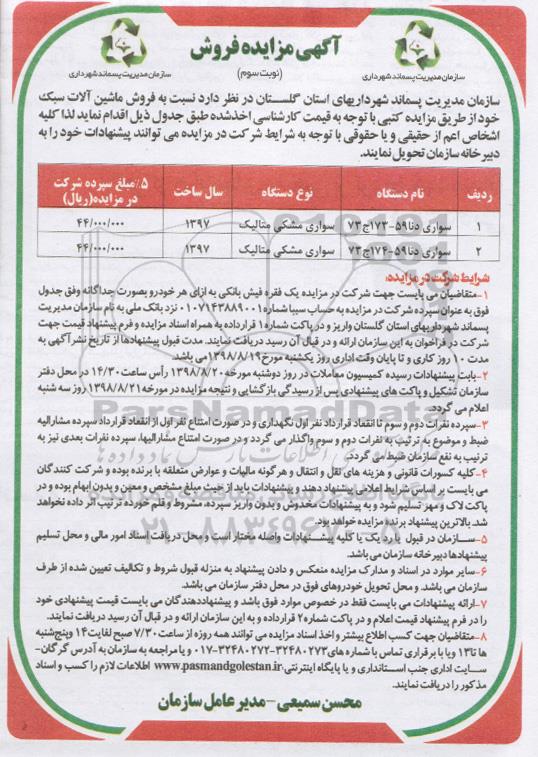 آگهی مزایده فروش
(نوبت سوم)
سازمان مدیریت پسماند شهرداری
سازمان مدیریت پسماند شهرداری
سازمان مدیریت پسماند شهرداریهای استان گلستان در نظر دارد نسبت به فروش ماشین آلات سبک
خود از طریق مزایده کتبی با توجه به قیمت کارشناسی اخذ شده طبق جدول ذیل اقدام نماید لذا کلیه
اشخاص اعم از حقیقی و یا حقوقی با توجه به شرایط شرکت در مزایده می توانند پیشنهادات خود را به
دبیرخانه سازمان تحویل نمایند.
ردیف نام دستگاه نوع دستگاه سال ساخت ۵٪مبلغ سپرده شرکت در مزایده(ریال)
۱ سواری دنا۵۹-۱۷۳ج۷۳ سواری مشکی متالیک ۱۳۹۷ ۴۴/۰۰۰/۰۰۰
۲ سواری دنا۵۹-۱۷۴ج۷۳ سواری مشکی متالیک ۱۳۹۷ ۴۴/۰۰۰/۰۰۰
شرایط شرکت در مزایده:
۱-متقاضیان می بایست جهت شرکت در مزایده یک فقره فیش بانکی به ازای هر خودرو بصورت جداگانه وفق جدول
فوق به عنوان سپرده شرکت در مزایده به حساب سیبا شماره ۰۱۰۷۱۴۳۸۸۹۰۰۱ نزد بانک ملی به نام سازمان مدیریت
پسماند شهرداریهای استان گلستان واریز و در پاکت شماره۱ قرارداده به همراه اسناد مزایده و فرم پیشنهاد قیمت جهت
شرکت در فراخوان به این سازمان ارائه و در قبال آن رسید دریافت نمایند. مدت قبول پیشنهادها از تاریخ نشر آگهی به
مدت ۱۰ روز کاری و تا پایان وقت اداری روز یکشنبه مورخ۱۳۹۸/۸/۱۹ می باشد.
۲-بابت پیشنهادات رسیده کمیسیون معاملات در روز دوشنبه مورخه۱۳۹۸/۸/۲۰ رأس ساعت۱۴/۳۰ در محل دفتر
سازمان تشکیل و پاکت های پیشنهادی پس از رسیدگی بازگشایی و نتیجه مزایده در مورخه۱۳۹۸/۸/۲۱ روز سه شنبه
اعلام می گردد.
۳-سپرده نفرات دوم و سوم تا انعقاد قرارداد نفر اول نگهداری و در صورت امتناع نفر اول از انعقاد قرارداد سپرده مشارالیه
ضبط و موضوع به ترتیب به نفرات دوم و سوم واگذار می گردد و در صورت امتناع مشارالیها، سپرده نفرات بعدی نیز به
ترتیب به نفع سازمان ضبط می گردد.
۴-کلیه کسورات قانونی و هزینه های نقل و انتقال و هرگونه مالیات و عوارض متعلقه با برنده بوده و شرکت کنندگان
می بایست بر اساس شرایط اعلامی پیشنهاد دهند و پیشنهادات باید از حیث مبلغ مشخص و معین و بدون ابهام بوده و در
پاکت لاک و مهر تسلیم شود و به پیشنهادات مخدوش و بدون واریز سپرده، مشروط و قلم خورده ترتیب اثر داده نخواهد
شد. بالاترین پیشنهاد برنده مزایده خواهد بود.
۵-سازمان در قبول یا رد یک یا کلیه پیشنهادات واصله مختار است و محل دریافت اسناد امور مالی و محل تسلیم
پیشنهادها دبیرخانه سازمان می باشد.
۶-سایر موارد در اسناد و مدارک مزایده منعکس و دادن پیشنهاد به منزله قبول شروط و تکالیف تعیین شده از طرف
سازمان می باشد. و محل تحویل خودروهای فوق در محل دفتر سازمان می باشد.
۷-ارائه پیشنهادات می بایست فقط در خصوص موارد فوق باشد و پیشنهاددهندگان می بایست قیمت پیشنهادی خود
را در فرم پیشنهاد قیمت اعلام و در پاکت شماره۲ قرارداده و به این سازمان ارائه و در قبال آن رسید دریافت نمایند.
۸-متقاضیان جهت کسب اطلاع بیشتر و اخذ اسناد مزایده می توانند همه روزه از ساعت ۷/۳۰ صبح لغایت۱۴ و پنج شنبه
ها تا۱۳ و یا با برقراری تماس با شماره های۳۲۴۸۰۲۷۳-۳۲۴۸۰۲۷۲-۰۱۷ و یا مراجعه به سازمان به آدرس گرگان-
سایت اداری جنب استانداری و یا پایگاه اینترنتی:www.pasmandgolestan.ir اطلاعات لازم را کسب و اسناد
مذکور را دریافت نمایند.
محسن سمیعی -مدیر عامل سازمان
ParsNamadData